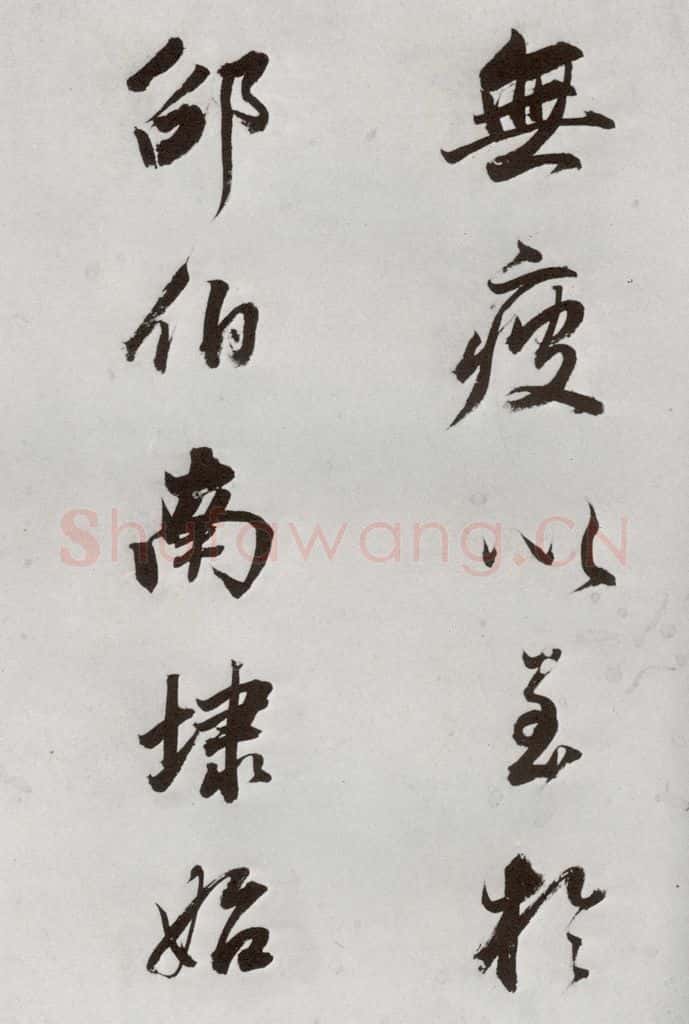 無疲以至於
邵伯南埭始
Shufawang.CN